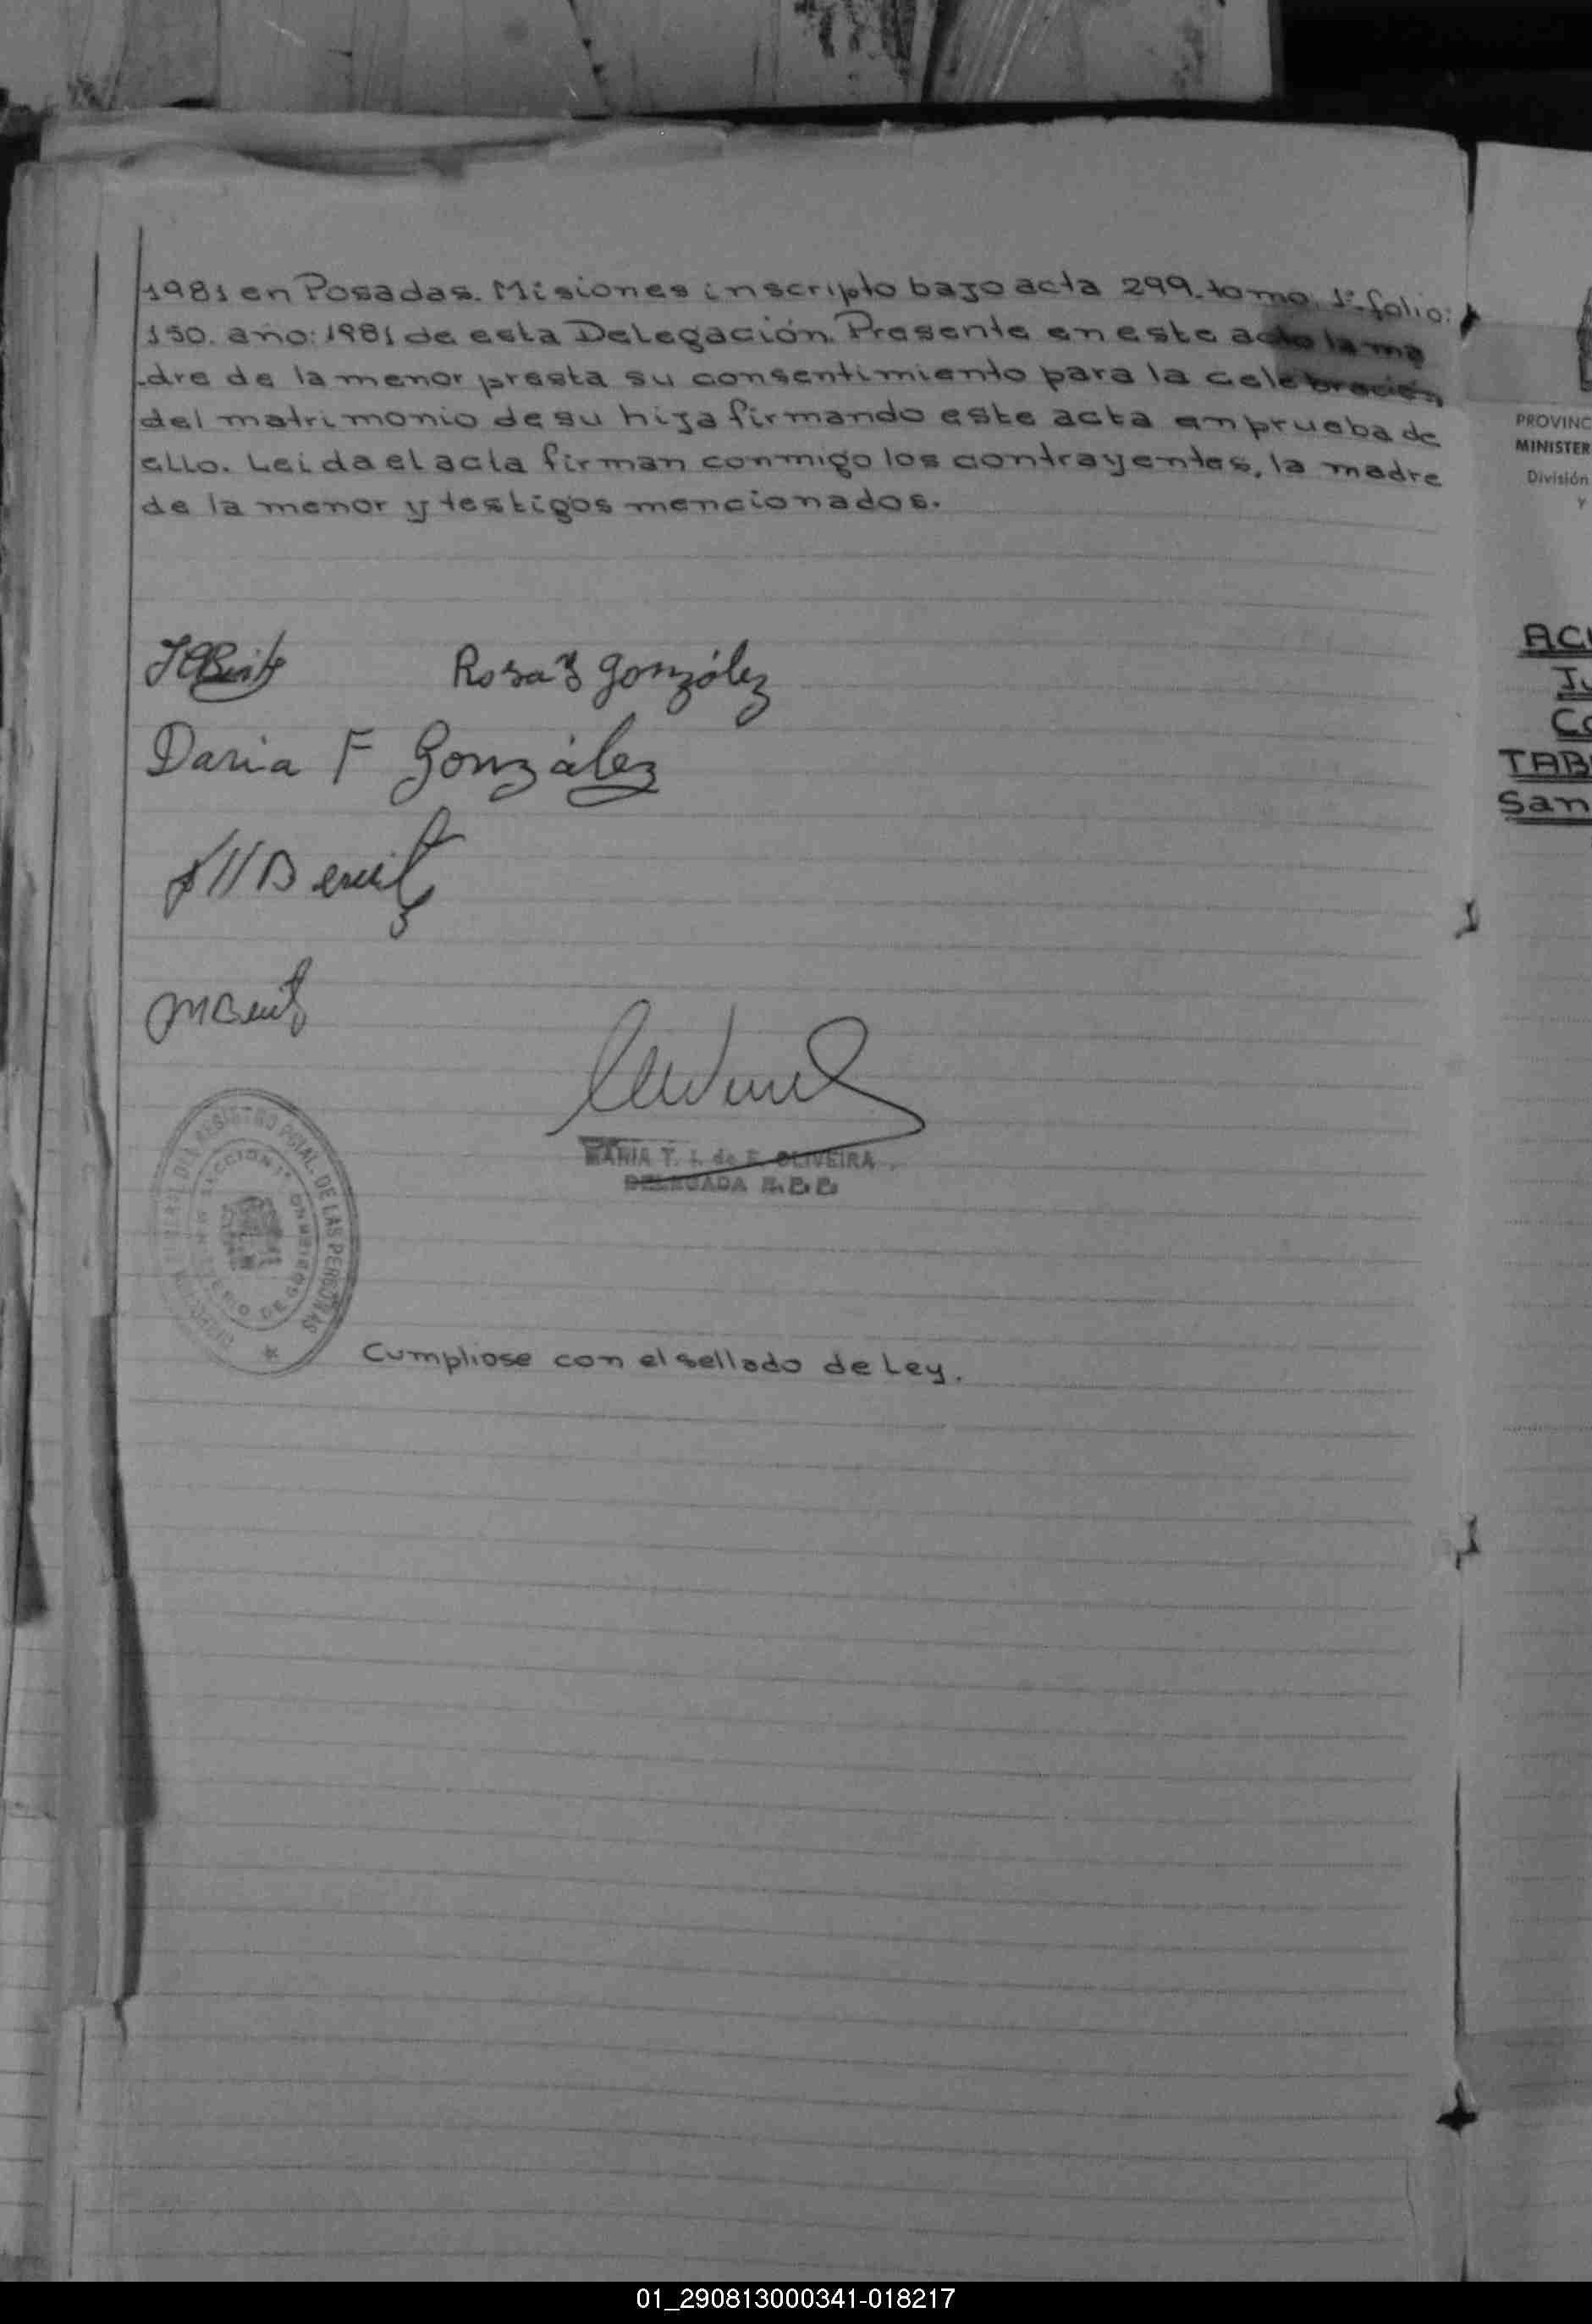 1981 en Posadas. Misiones inscripto bajo acta 299. tomo. 1º folio:
150. año: 1981 de esta Delegación. Presente en este acto la ma
dre de la menor presta su consentimiento para la celebración
del matrimonio de su hija firmando este acta en prueba de
ello. Leida el acta firman conmigo los contrayentes, la madre
de la menor y testigos mencionados.
Rosa González
Daria F González
MARIA T. I. de F. OLIVEIRA
DELEGADA
REGISTRO PCIAL. DE LAS PERSONAS
MINISTERIO DE GOBIERNO
SECCION 1ª
Cumpliose con el sellado de Ley.
PROVINC
MINISTER
División
y
AC
Co
TAB
San
01_290813000341-018217